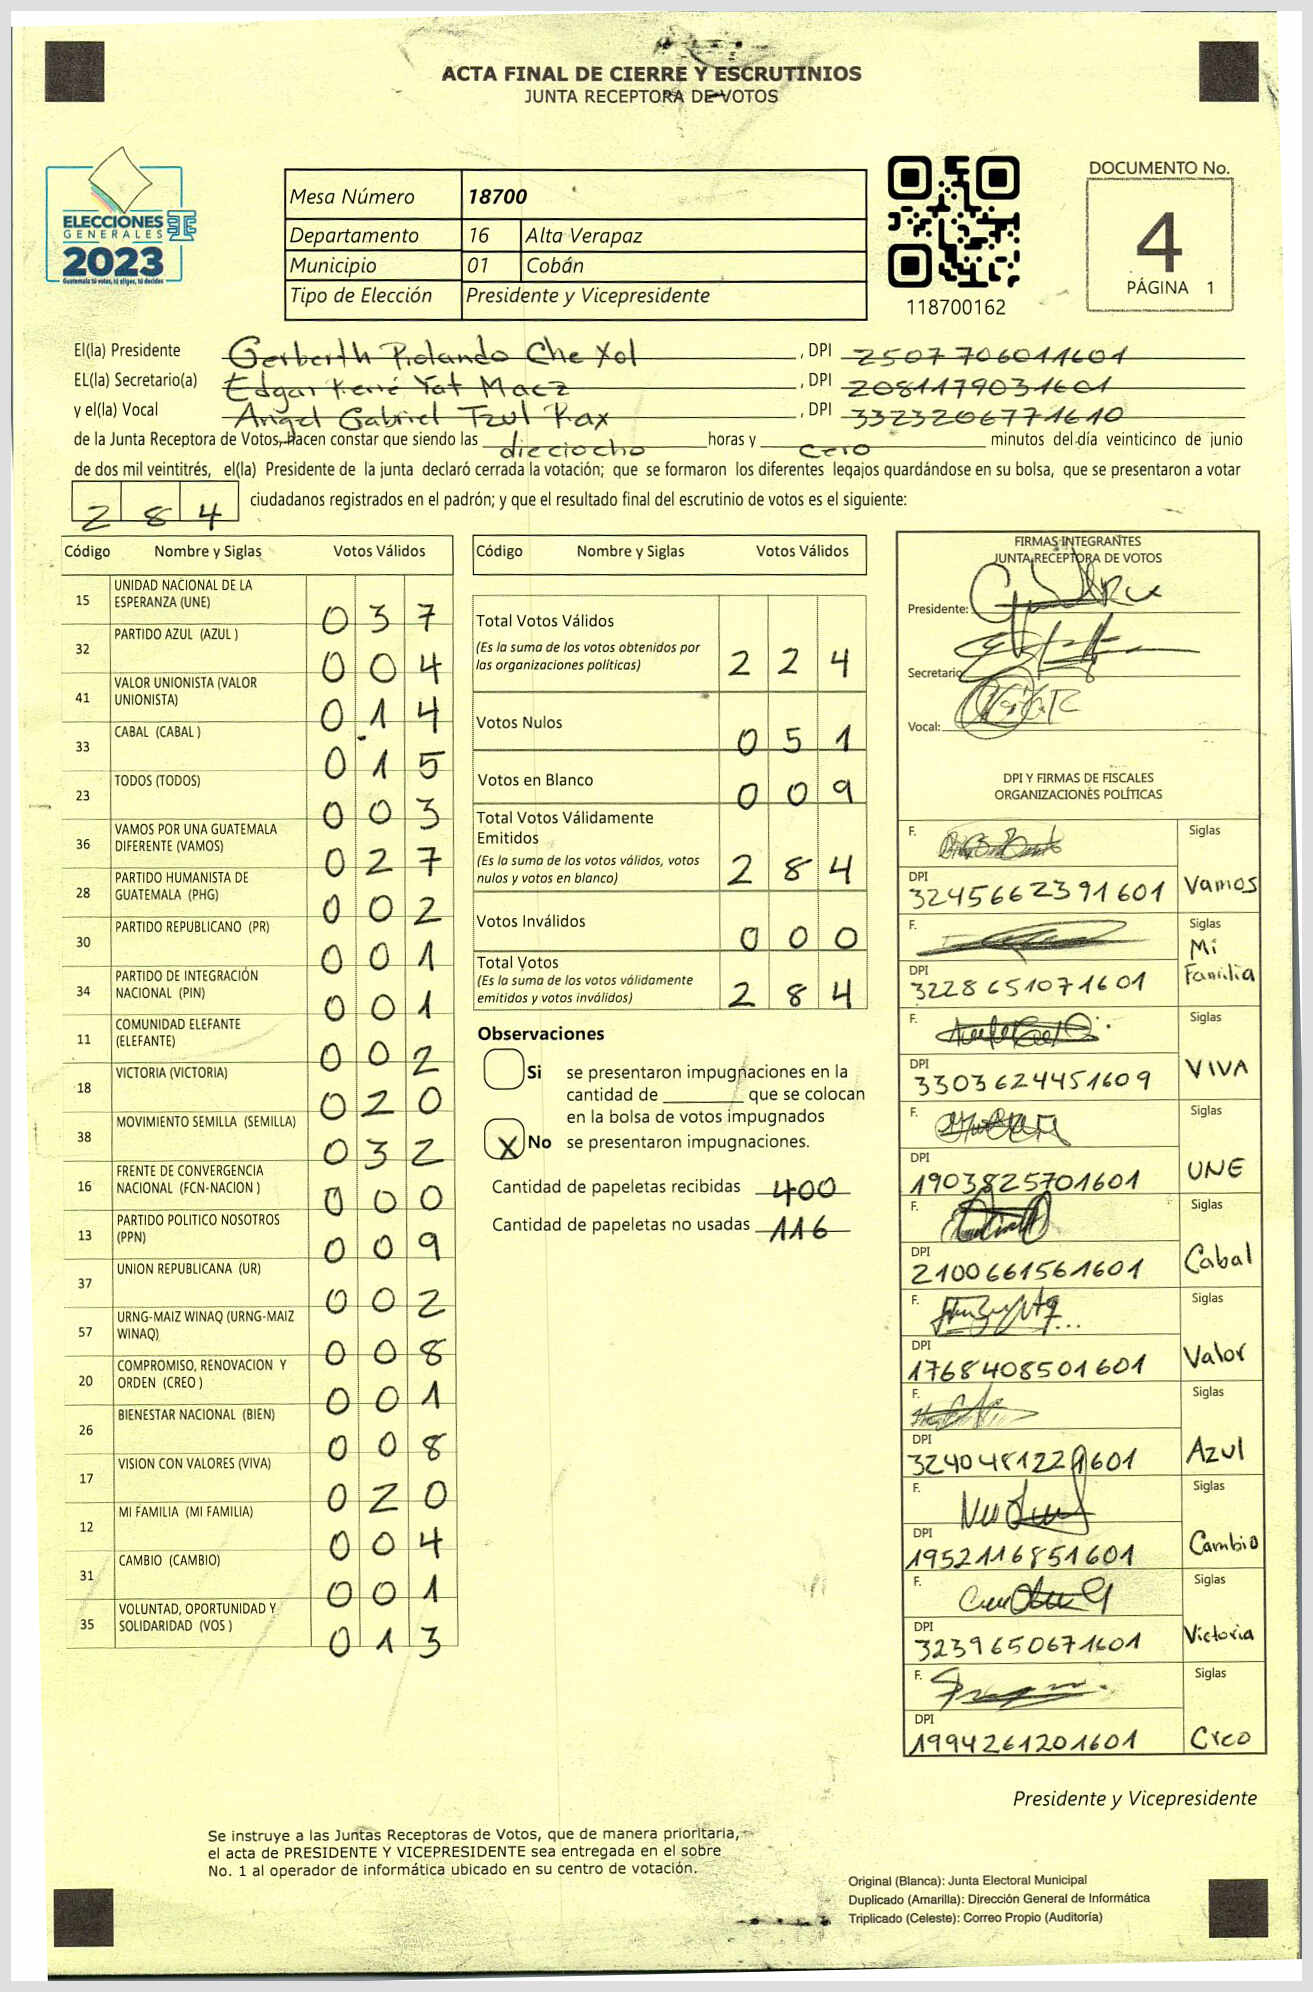 ACTA FINAL DE CIERRE Y ESCRUTINIOS
JUNTA RECEPTORA DE VOTOS
ELECCIONES
GENERALES
2023
Guatemala tú votas, tú eliges, tú decides
Mesa Número 18700
Departamento 16 Alta Verapaz
Municipio 01 Cobán
Tipo de Elección Presidente y Vicepresidente
118700162
DOCUMENTO No.
4
PÁGINA 1
El(la) Presidente Gerberth Rolando Che Xol, DPI 2507706011601
EL(la) Secretario(a) Edgar René Yat Maez, DPI 2081179031601
y el(la) Vocal Angel Gabriel Tzul Rax, DPI 3323206771610
de la Junta Receptora de Votos, hacen constar que siendo las dieciocho horas y cero minutos del día veinticinco de junio
de dos mil veintitrés, el(la) Presidente de la junta declaró cerrada la votación; que se formaron los diferentes legajos guardándose en su bolsa, que se presentaron a votar
284 ciudadanos registrados en el padrón; y que el resultado final del escrutinio de votos es el siguiente:
Código Nombre y Siglas Votos Válidos
15 UNIDAD NACIONAL DE LA
ESPERANZA (UNE) 037
32 PARTIDO AZUL (AZUL ) 004
41 VALOR UNIONISTA (VALOR
UNIONISTA) 014
33 CABAL (CABAL ) 015
23 TODOS (TODOS) 003
36 VAMOS POR UNA GUATEMALA
DIFERENTE (VAMOS) 027
28 PARTIDO HUMANISTA DE
GUATEMALA (PHG) 002
30 PARTIDO REPUBLICANO (PR) 001
34 PARTIDO DE INTEGRACIÓN
NACIONAL (PIN) 001
11 COMUNIDAD ELEFANTE
(ELEFANTE) 002
18 VICTORIA (VICTORIA) 020
38 MOVIMIENTO SEMILLA (SEMILLA) 032
16 FRENTE DE CONVERGENCIA
NACIONAL (FCN-NACION ) 000
13 PARTIDO POLITICO NOSOTROS
(PPN) 009
37 UNION REPUBLICANA (UR) 002
57 URNG-MAIZ WINAQ (URNG-MAIZ
WINAQ) 008
20 COMPROMISO, RENOVACION Y
ORDEN (CREO ) 001
26 BIENESTAR NACIONAL (BIEN) 008
17 VISION CON VALORES (VIVA) 020
12 MI FAMILIA (MI FAMILIA) 004
31 CAMBIO (CAMBIO) 001
35 VOLUNTAD, OPORTUNIDAD Y
SOLIDARIDAD (VOS ) 013
Código Nombre y Siglas Votos Válidos
Total Votos Válidos
(Es la suma de los votos obtenidos por
las organizaciones políticas) 224
Votos Nulos 051
Votos en Blanco 009
Total Votos Válidamente
Emitidos
(Es la suma de los votos válidos, votos
nulos y votos en blanco) 284
Votos Inválidos 000
Total Votos
(Es la suma de los votos válidamente
emitidos y votos inválidos) 284
Observaciones
Si se presentaron impugnaciones en la
cantidad de ________ que se colocan
en la bolsa de votos impugnados
X No se presentaron impugnaciones.
Cantidad de papeletas recibidas 400
Cantidad de papeletas no usadas 116
FIRMAS INTEGRANTES
JUNTA RECEPTORA DE VOTOS
Presidente:
Secretario
Vocal:
DPI Y FIRMAS DE FISCALES
ORGANIZACIONES POLÍTICAS
F. Siglas
DPI
3245662391601 Vamos
F. Siglas
Mi
DPI Familia
3228651071601
F. Siglas
DPI VIVA
3303624451609
F. Siglas
DPI UNE
1903825701601
F. Siglas
DPI Cabal
2100661561601
F. Siglas
DPI Valor
1768408501601
F. Siglas
DPI Azul
3240481229601
F. Siglas
DPI Cambio
1952116851601
F. Siglas
DPI Victoria
3239650671601
F. Siglas
DPI
1994261201601 Creo
Presidente y Vicepresidente
Se instruye a las Juntas Receptoras de Votos, que de manera prioritaria,
el acta de PRESIDENTE Y VICEPRESIDENTE sea entregada en el sobre
No. 1 al operador de informática ubicado en su centro de votación.
Original (Blanca): Junta Electoral Municipal
Duplicado (Amarilla): Dirección General de Informática
Triplicado (Celeste): Correo Propio (Auditoría)